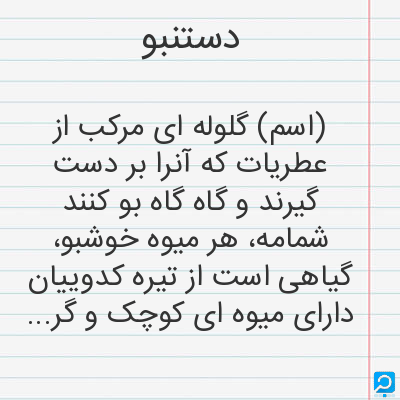 دستنبو
(اسم) گلوله ای مرکب از
عطریات که آنرا بر دست
گیرند و گاه گاه بو کنند
شمامه، هر میوه خوشبو،
گیاهی است از تیره کدوییان
دارای میوه ای کوچک و گر...